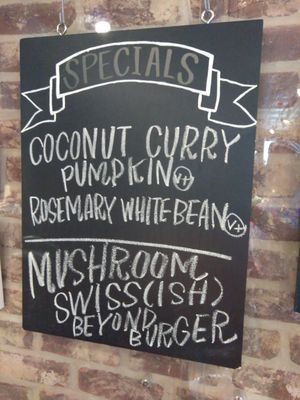 SPECIALS
COCONUT CURRY
PUMPKIN V+
ROSEMARY WHITE BEAN V+
MUSHROOM
SWISS(ISH)
BEYOND BURGER